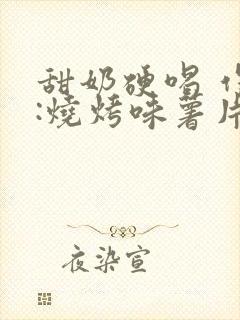 甜奶硬唱
:燒烤味薯片
夜染宣